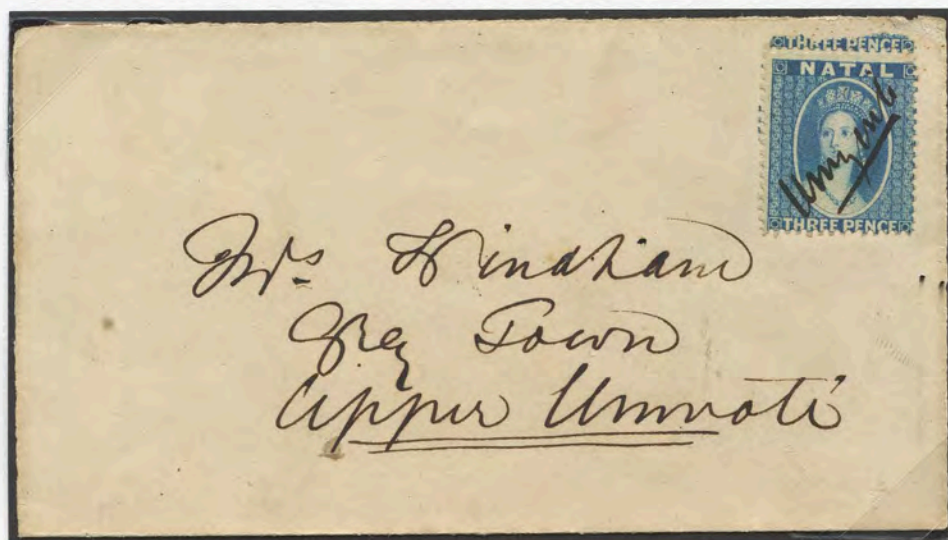 THREE PENCE
NATAL
THREE PENCE
Mrs Windham
Grey Town
Upper Umvoti